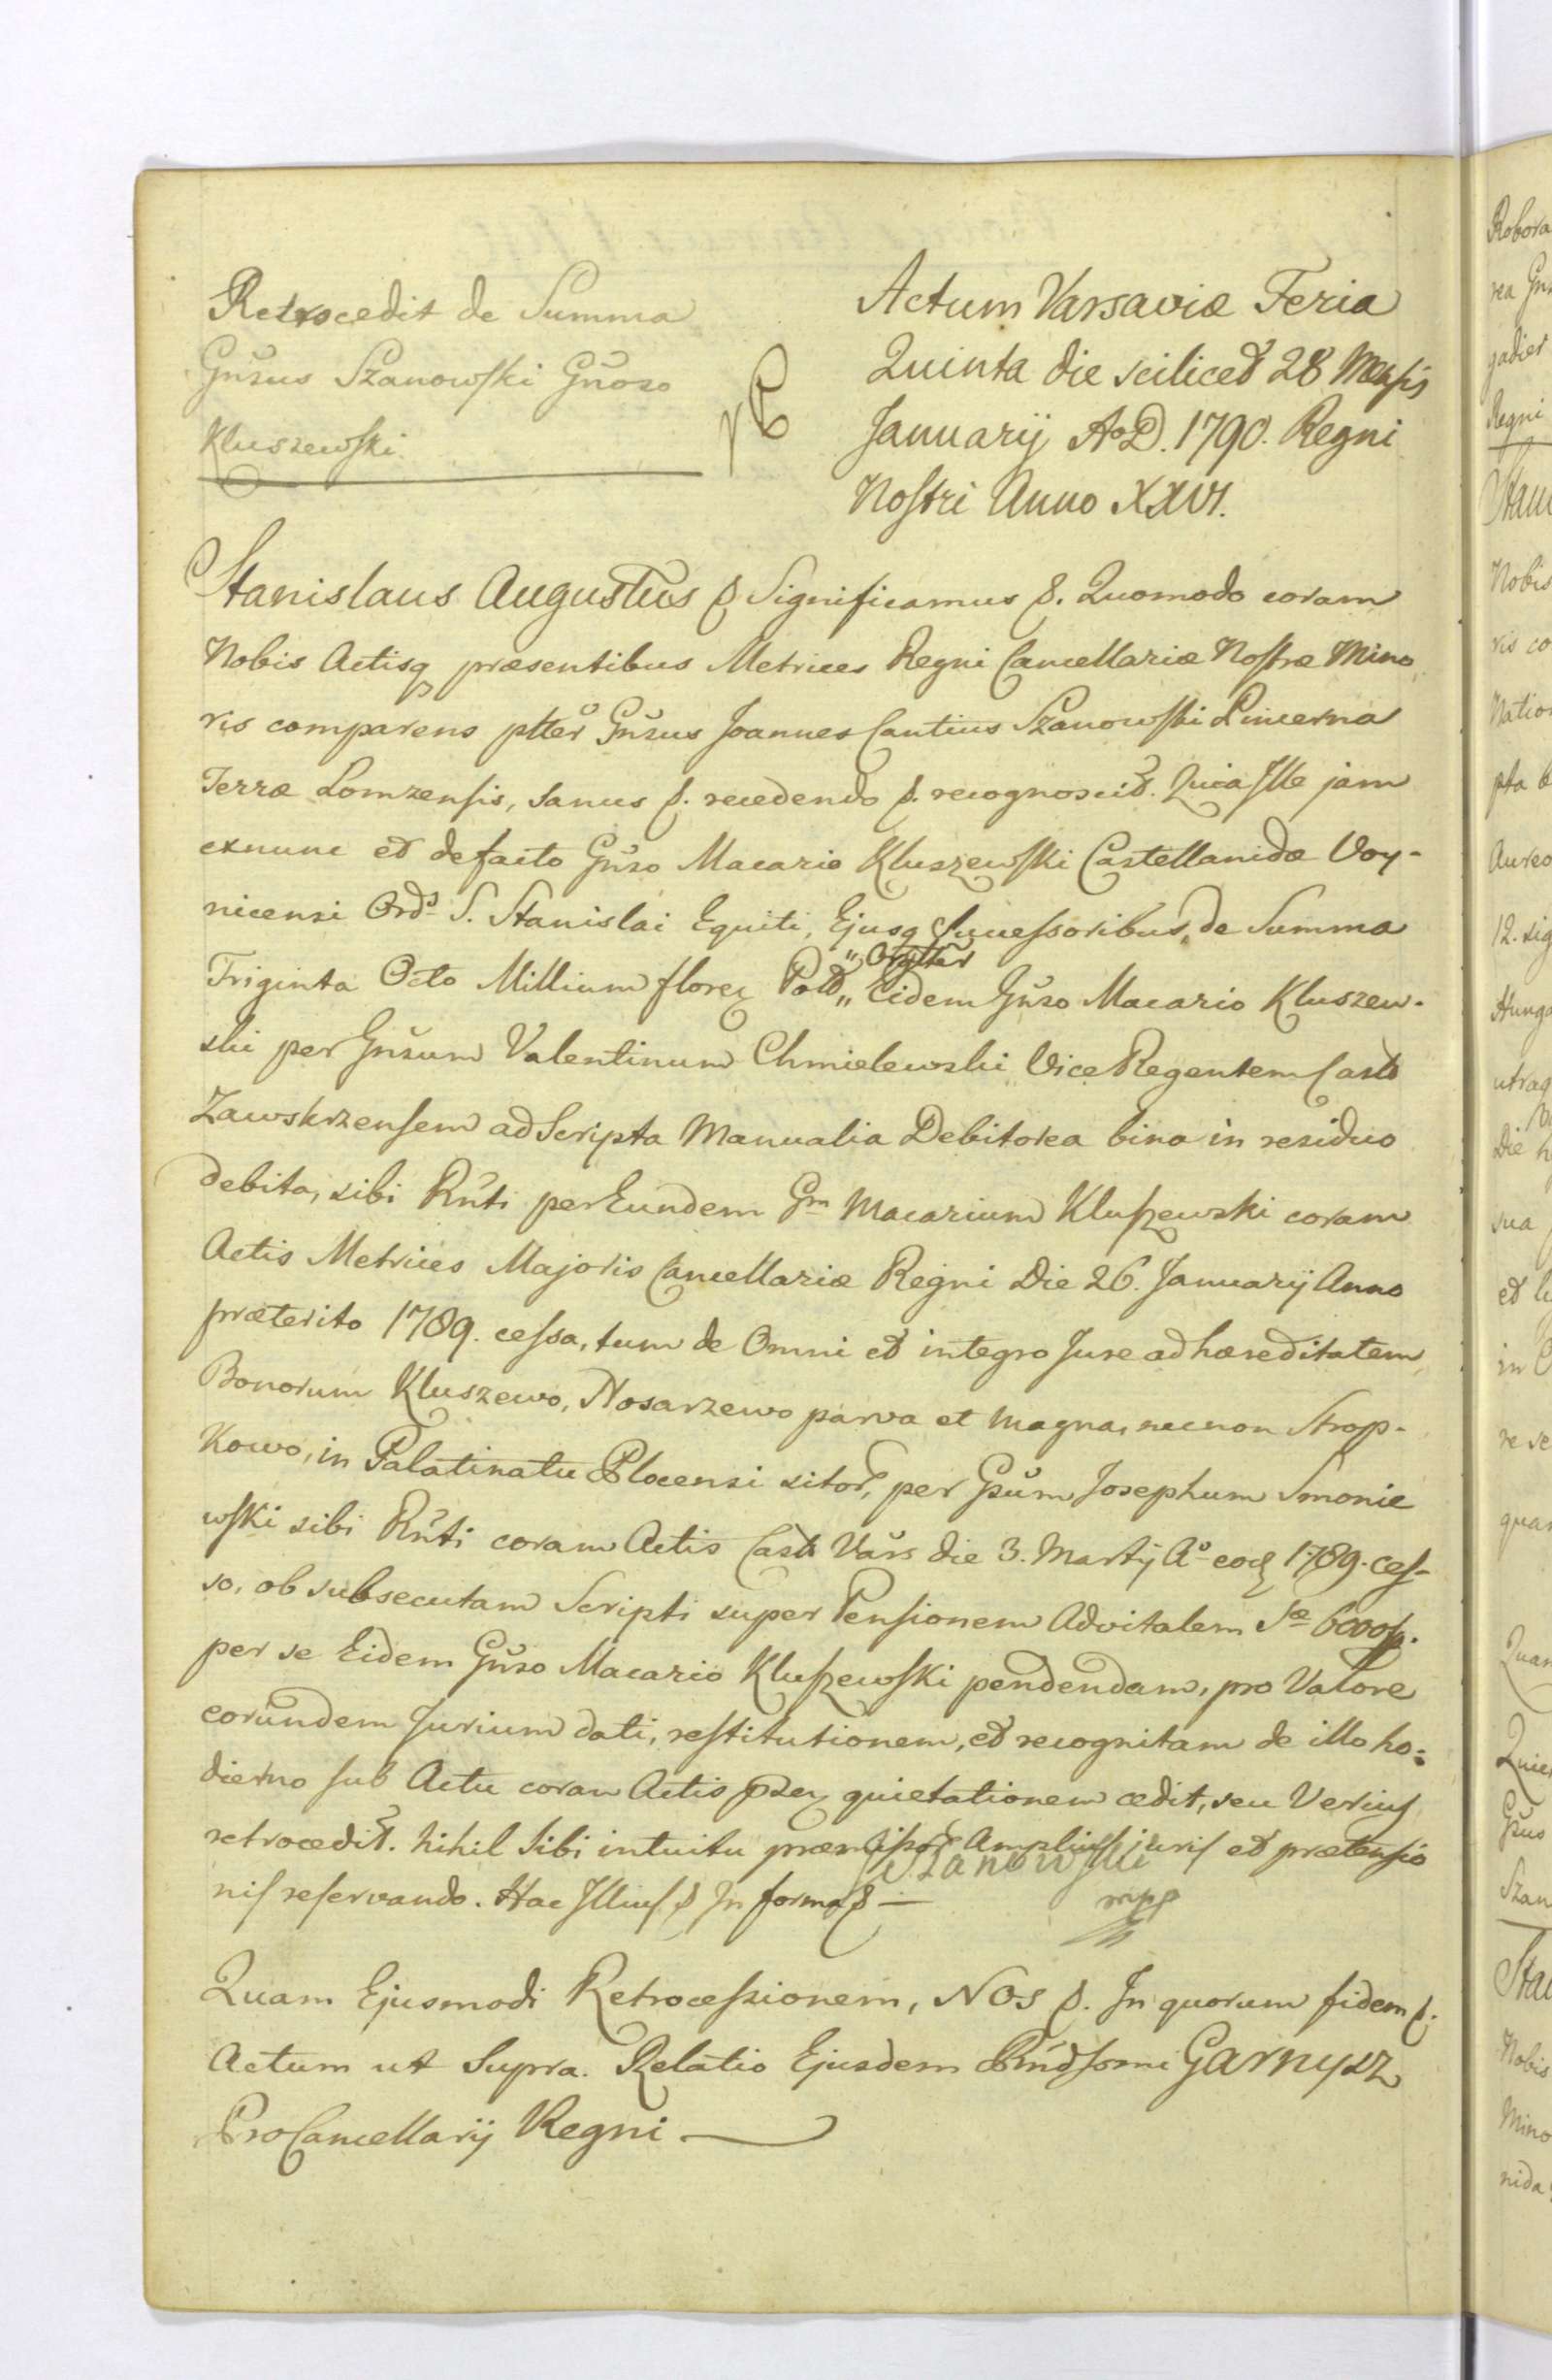 Retrocedit de Summa
Gnŭsus Szanowski Gnŏso
Kluszewski
Actum Varsaviæ Feria
Quinta die scilicet 28 Mensis
Januarij AoD. 1790. Regni
Nostri Anno XXVI.
Stanislaus Augustus & Significamus &. Quomodo coram
Nobis Actisq præsentibus Metrices Regni Cancellariæ Nostræ Mino
ris comparens ptter Gnŭsus Joannes Cantius Szanowski Pincerna
Terræ Lomzensis, sanus &. recedendo &. recognoscit. Quia Ille jam
exnunc et defacto Gnŭso Macario Kluszewski Castellanidæ Voy-
nicensi Ords S. Stanislai Equiti, Ejusq Successoribus, de Summa
Triginta Octo Millium floren Pold „ Eidem Gnŭso Macario Kluszew-
„ Orgttŭr
ski per Gnŭsum Valentinum Chmielewski Vice Regentem Casts
Zawskrzensem ad Scripta Manualia Debitorea bina in residuo
debita, sibi Rn̆ti per Eundem Gm Macarium Kluszewski coram
Actis Metrices Majoris Cancellariæ Regni Die 26. Januarij Anno
præterito 1789. cessa, tum de Omni et integro Jure ad hæreditatem
Bonorum Kluszewo, Nosarzewo parva et magna, necnon Strop-
kowo, in Palatinatu Plocensi sitor, per Gsŭm Josephum Smonie
wski sibi Rn̆ti coram Actis Casts Vărs die 3. Martij Ao eod 1789. ces-
so, ob subsecutam Scripti super Pensionem Advitalem Sæ 6000f.
per se Eidem Gnŭso Macario Kluszewski pendendam, pro Valore
eorundem Jurium dati, restitutionem, et recognitam de illo ho-
dierno sub Actu coram Actis pscn quietationem cedit, seu Verius
retrocedit. nihil Sibi intuitu præmissor Amplius juris et prætensio
nis reservando. Hac Illius & In forma & —
JSzanowski
mpp
Quam Ejusmodi Retrocessionem, NOS &. In quorum fidem &.
Actum ut Supra. Relatio Ejusdem Garnysz
ProCancellarij Regni